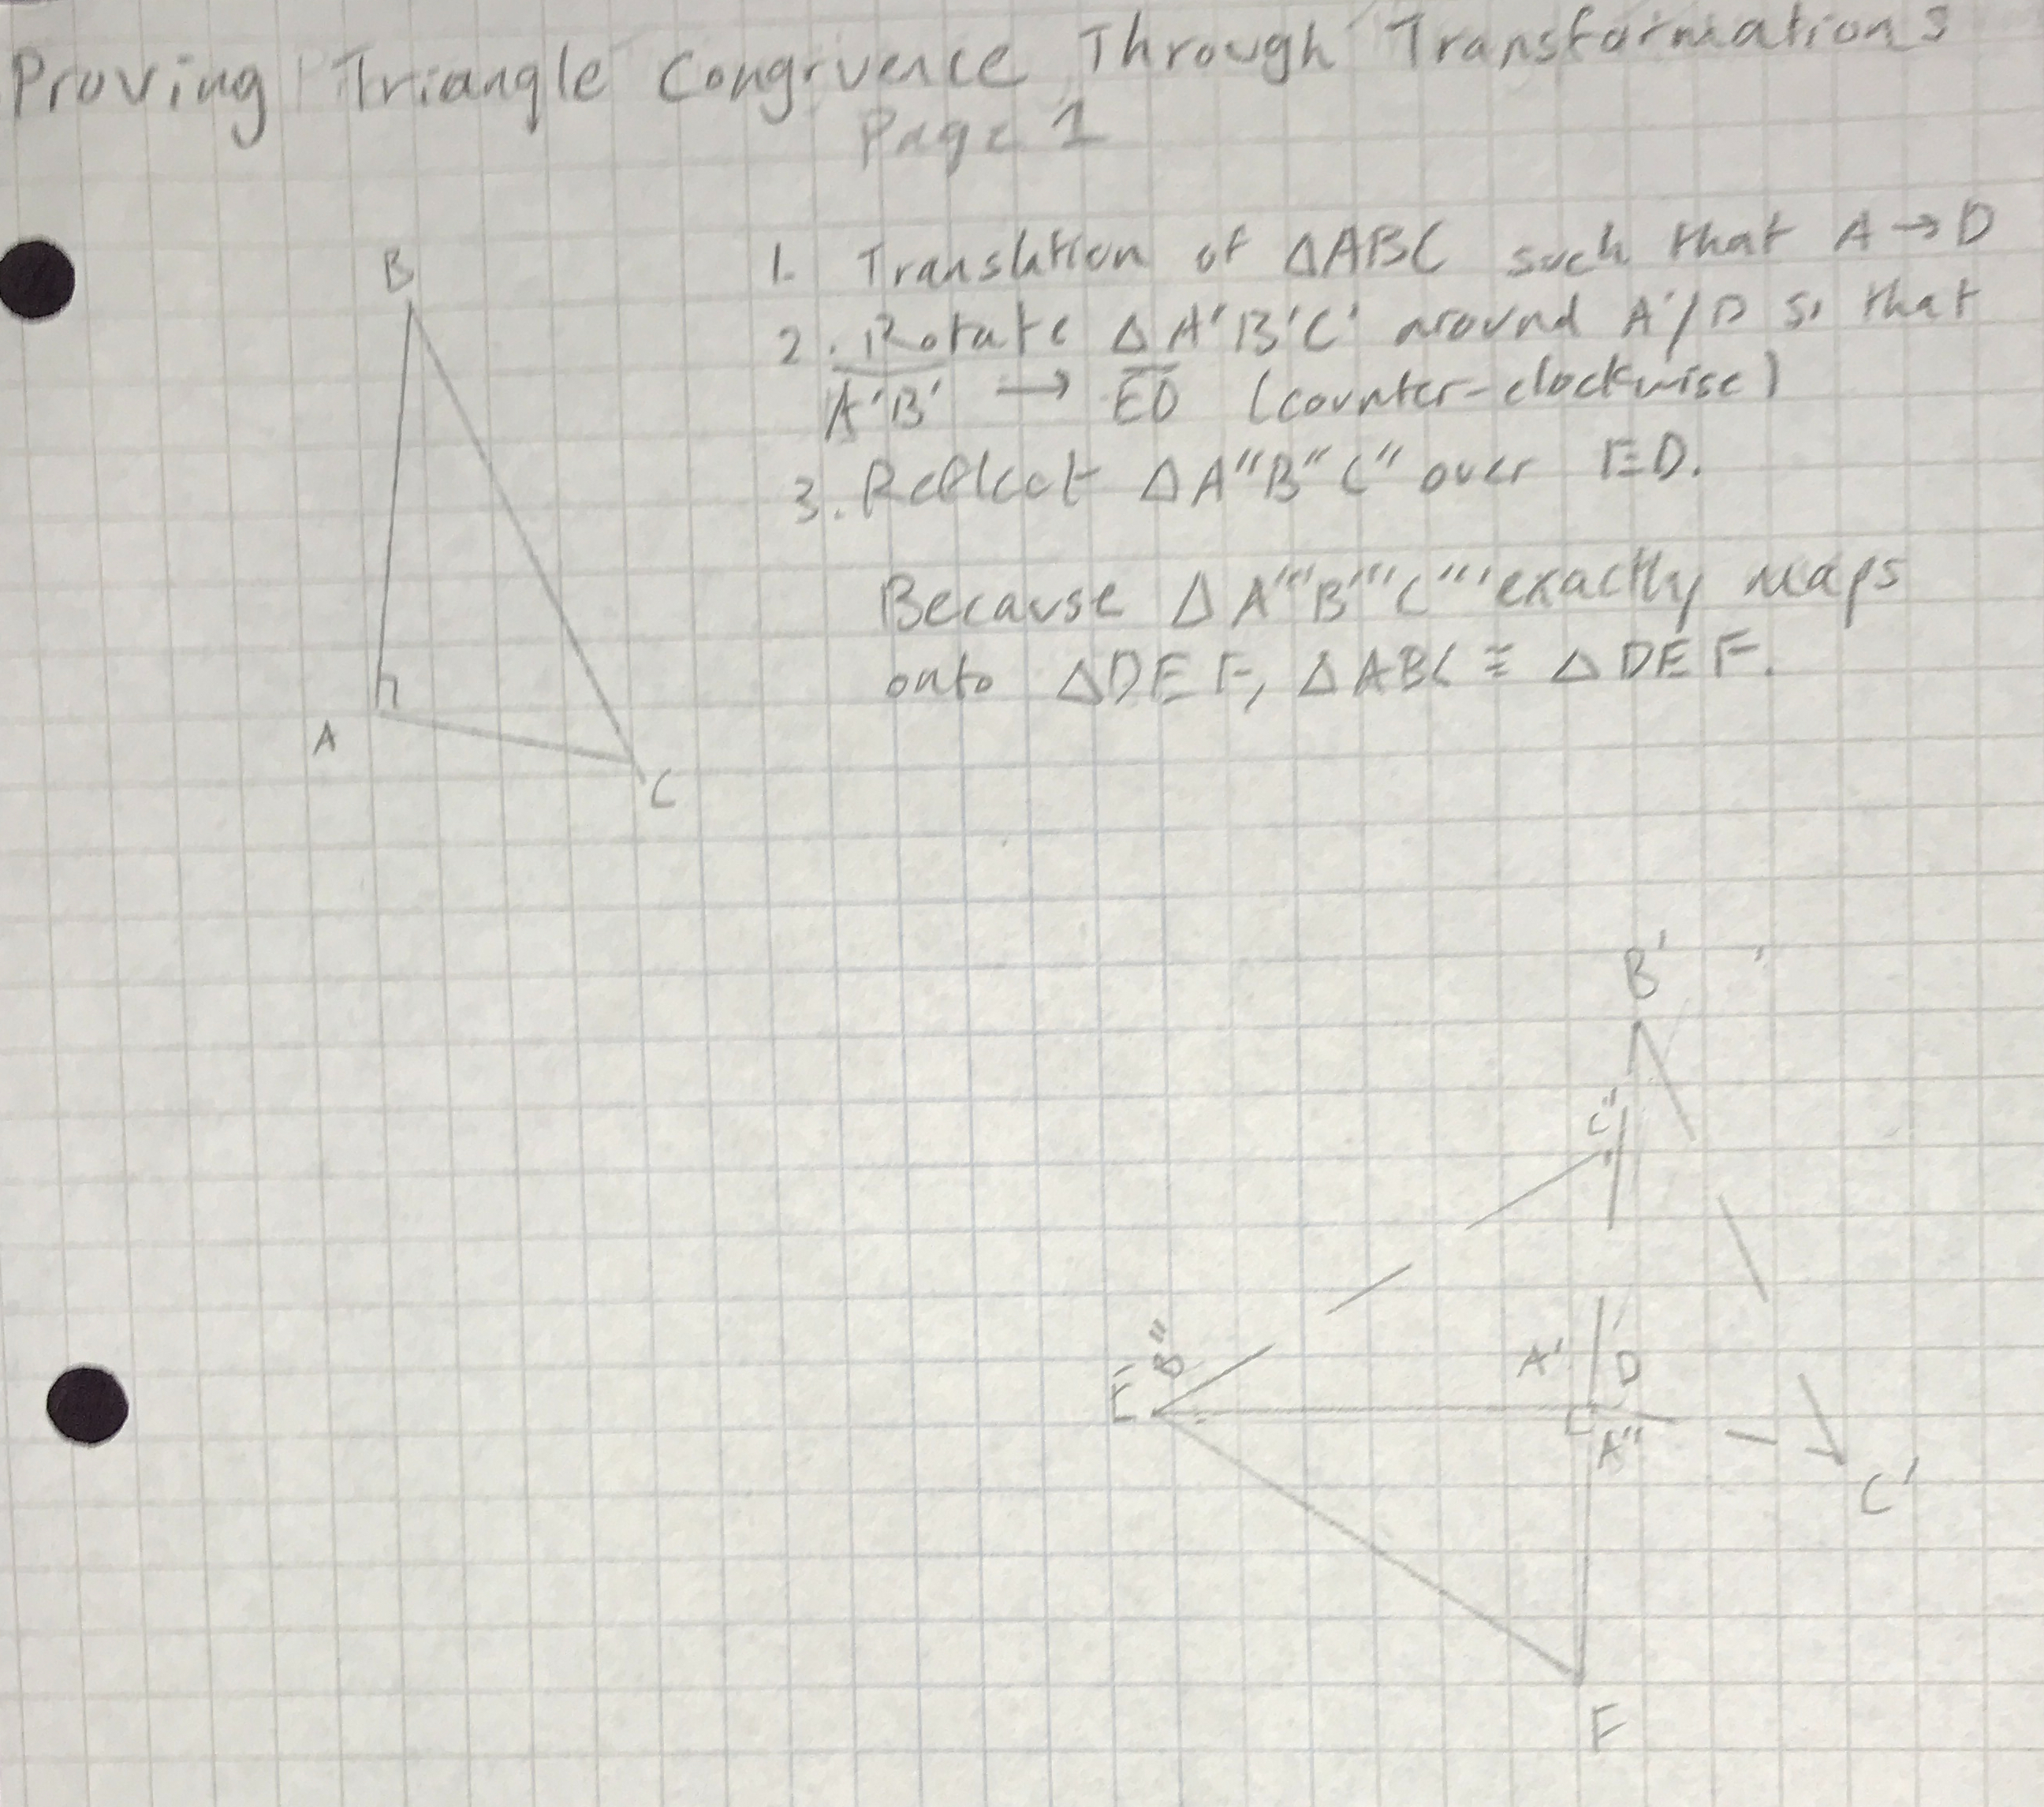 Proving Triangle Congruence Through Transformations
Page 1
B
1. Translation of △ABC such that A → D
2. Rotate △A'B'C' around A'/D so that
A'B' → ED (counter-clockwise)
3. Reflect △A"B"C" over ED.
Because △A'''B'''C''' exactly maps
onto △DEF, △ABC ≅ △DEF.
A
C
B'
C"
B"
A' D
E
A"
C'
F